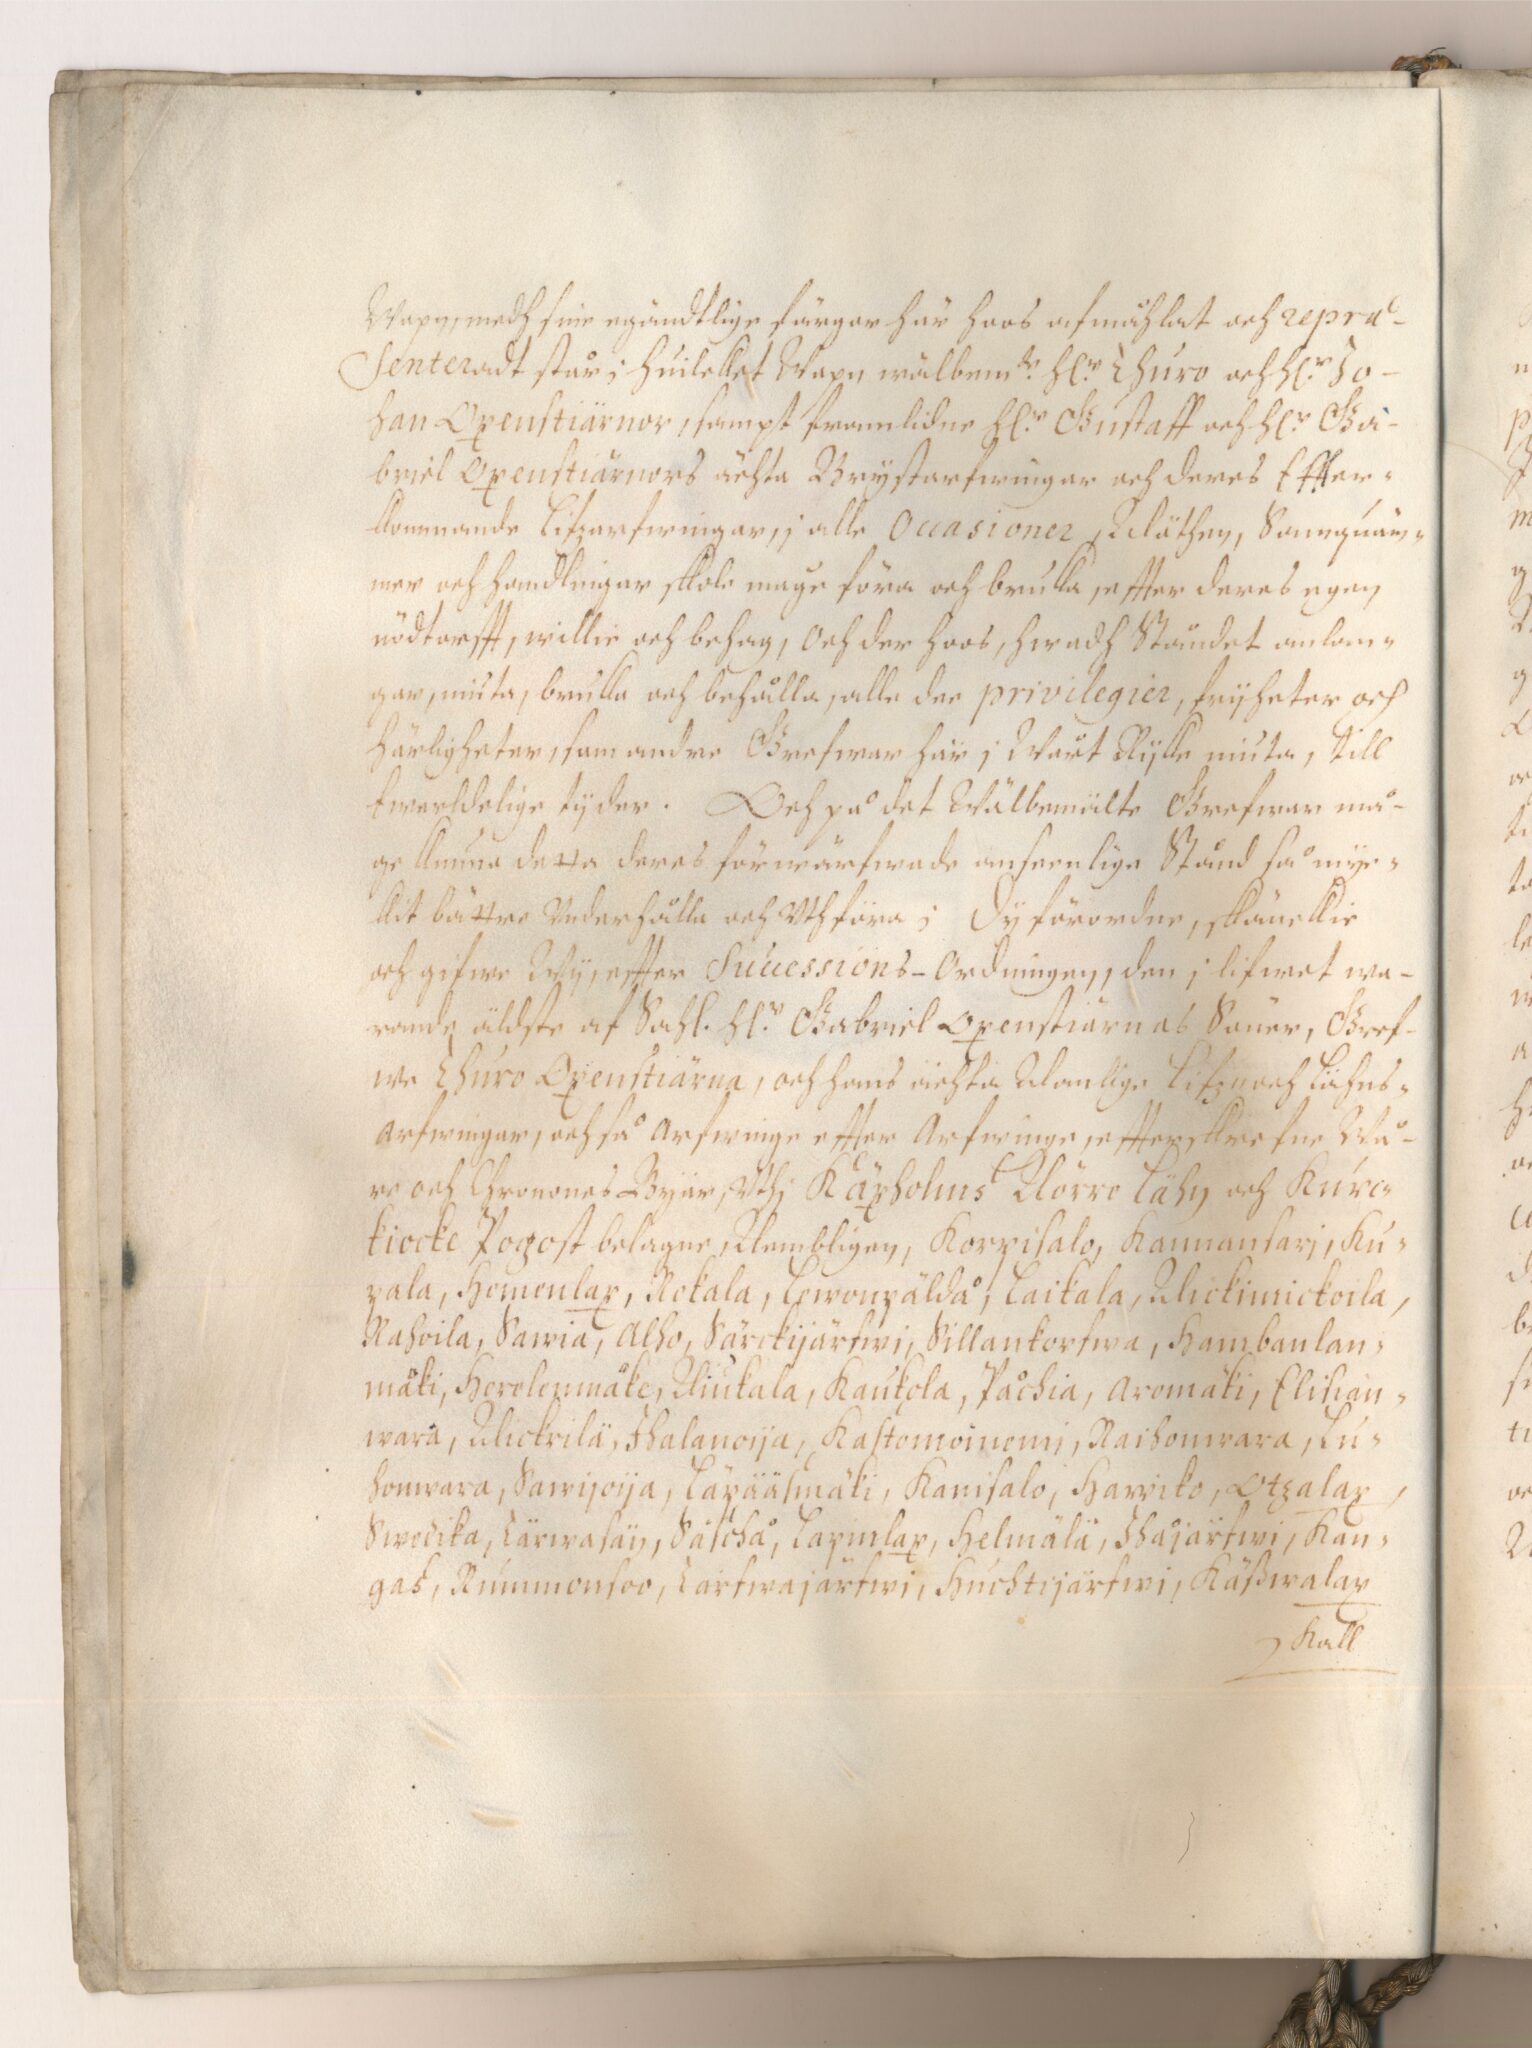 Wapn, medh sine egändtlige färgor här hoos afmåhlat och repræ-
senteradt står; Huilcket Wapn wälbem:te H:r Thuro och H:r Jo-
han Oxenstiärnor, sampt framlidne H:r Gustaff och H:r Ga-
briel Oxenstiärnors ächta Bryst arfwingar och deres Effter-
kommande Lifzarfwingar, i alle Occasioner, Möthen, Samquäm-
mer och handlingar skole mage föra och brucka, effter deres egen
nödtorfft, willie och behag, Och der hoos, hwadh Ståndet anlan-
gar, niuta, brucka och behålla, alle dee privilegier, frijheter och
härligheter, som andre Grefwar här i Wårt Rijke niuta, till
Ewerldelige tijder. Och på det Wälbemälte Grefwar må-
ge kunna detta deres förwärfwade anseenlige Stånd så myc-
kit bättre Underhålla och Uthföra; Dy förordne, skänckie
och gifwe Wij, effter Successions-Ordningen, den i lifwet wa-
rande äldste af Sahl. H:r Gabriel Oxenstiärnas Söner, Gref-
we Thuro Oxenstiärna, och hans ächta Manlige Lifz och Lähns-
Arfwingar, och så Arfwinge effter Arfwinge, effterskrefne Wå-
re och Chronones Byiar, Uthi Käxholms Norre Lähn och Kurc-
kiocke Pogost belägne, Nembligen, Korpisalo, Kannansari, Ku-
pala, Homenlax, Rokala, Lewonpäldå, Laikala, Mickimickoila,
Rahoila, Sawia, Alho, Särckijärfwi, Sillankorfwa, Hambanlan-
mäki, Herolenmäke, Niukala, Kaukola, Påchia, Aromäki, Elisian-
wara, Mickrilä, Ihalanoija, Kastomoinemi, Raihonwara, Lu-
honwara, Sawijoija, Läpääsmäki, Kanisalo, Harviko, Otzalax,
Swosika, Tärwasän, Säschå, Lapinlax, Helmälä, Ihajärfwi, Kan-
gas, Rummonsoo, Tarfwajärfwi, Huchtijärfwi, Käßwalax
, Kall